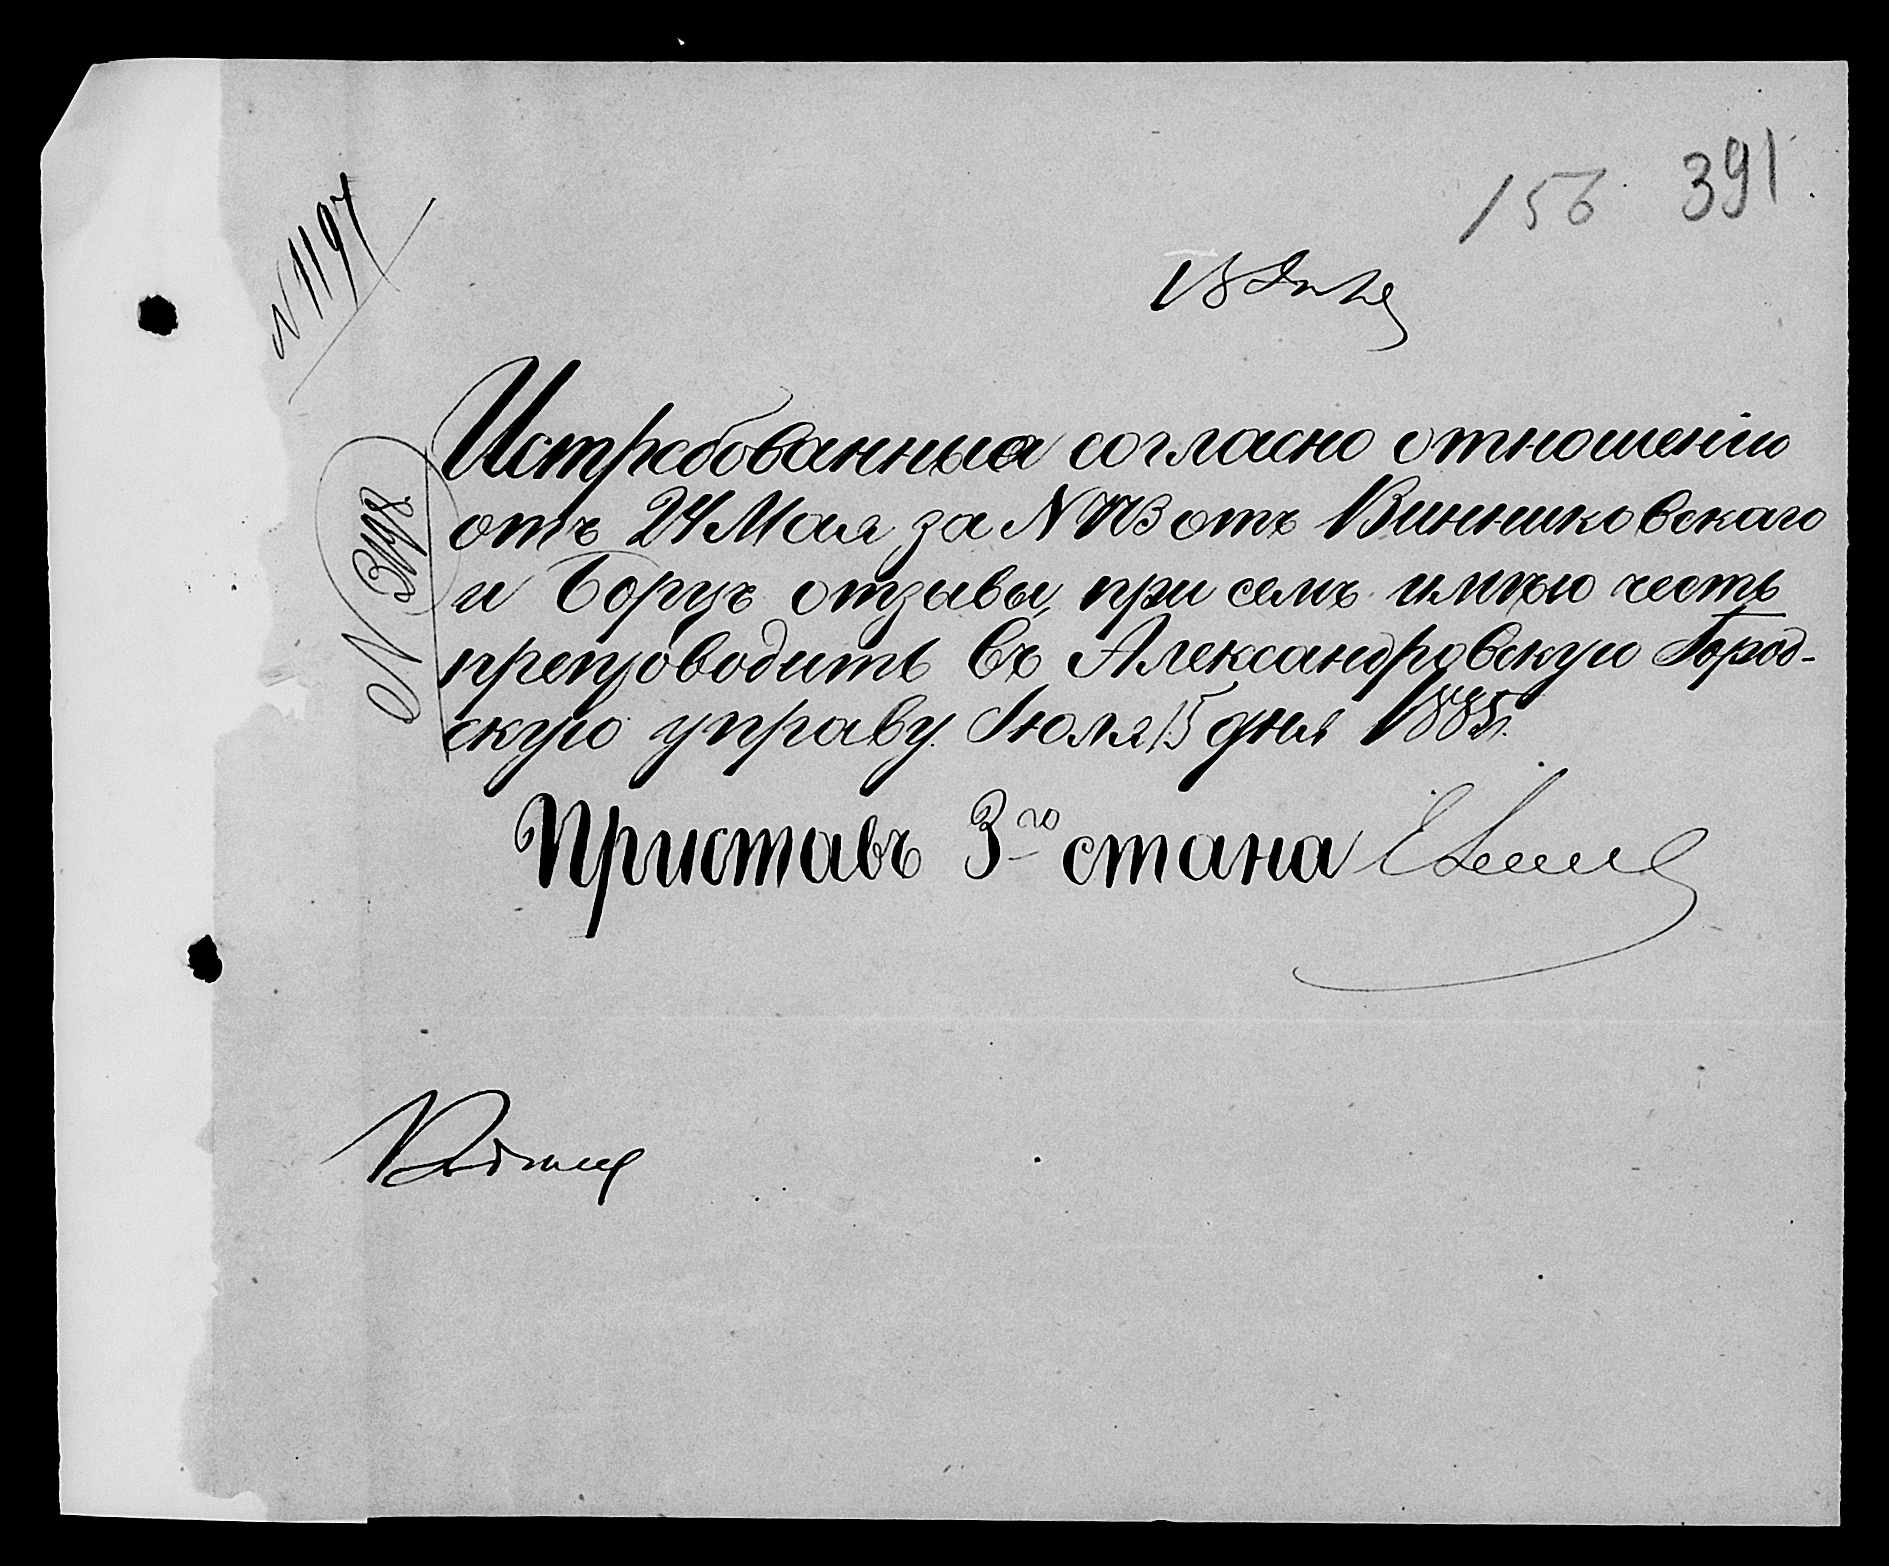 156 391
N 1197
N 3148
Истребованныя согласно отношенію
отъ 24 Мая за N 773 отъ Винниковскаго
и Борцъ отзывы, при семъ имѣю честь
препроводить въ Александровскую Город-
скую управу. Іюля 15 дня 1885 г.
Приставъ 3го стана